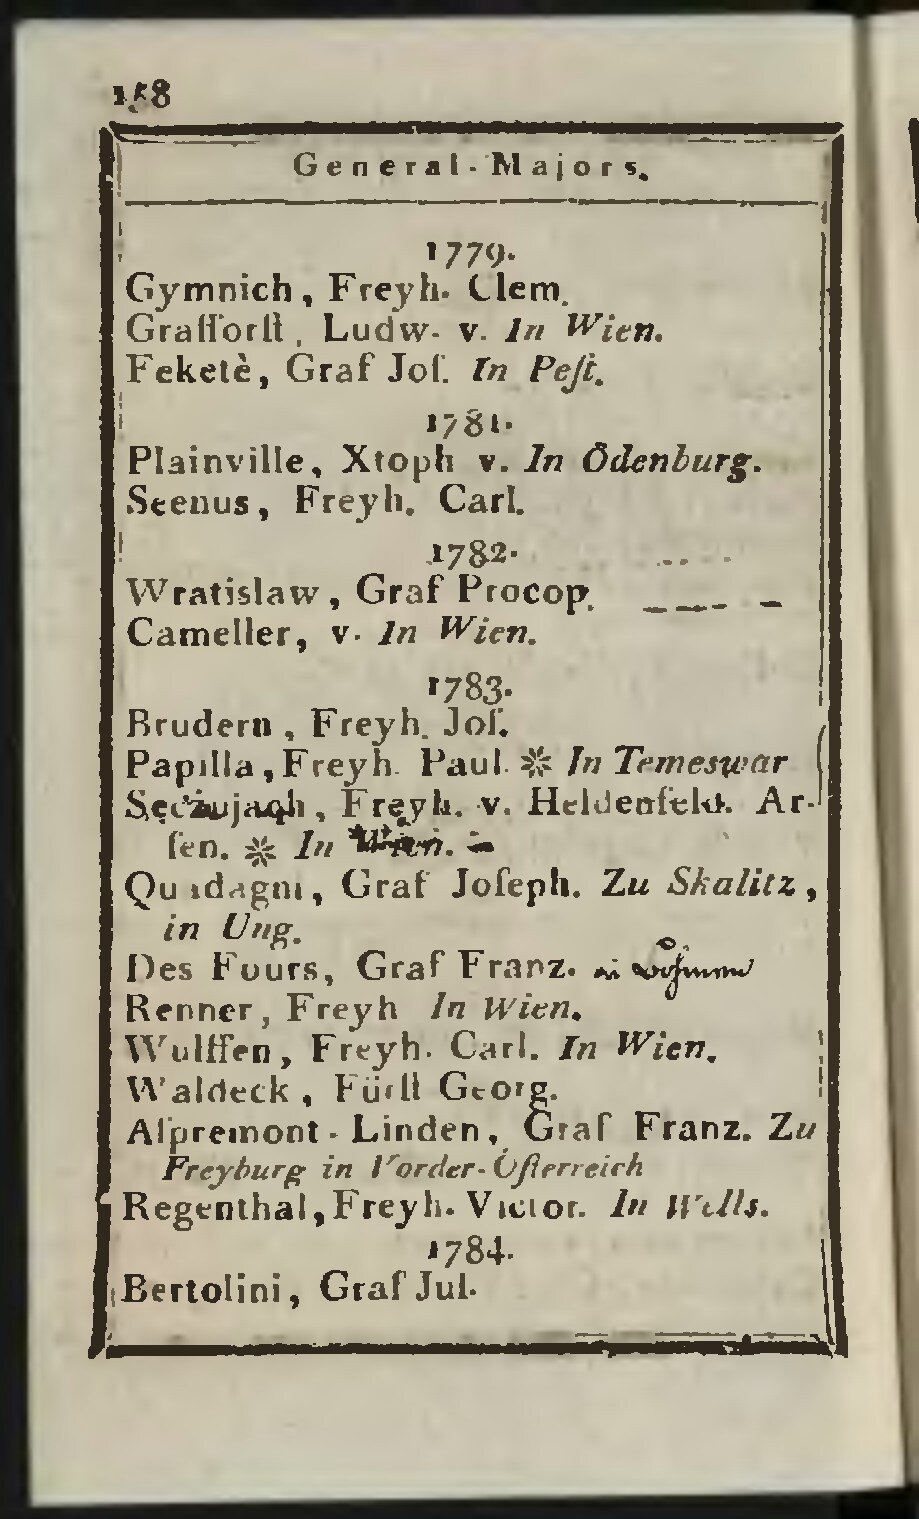 158
General-Majors.
1779.
Gymnich, Freyh. Clem.
Graſſorſt, Ludw. v. In Wien.
Feketè, Graf Joſ. In Peſt.
1781.
Plainville, Xtoph v. In Ödenburg.
Seenus, Freyh. Carl.
1782.
Wratislaw, Graf Procop.
Cameller, v. In Wien.
1783.
Brudern, Freyh. Joſ.
Papilla, Freyh. Paul. ※ In Temeswar
Freyh. v. Heldenfeld. Ar-
ſen. ※ In Wien.
Quadagni, Graf Joſeph. Zu Skalitz,
in Ung.
Des Fours, Graf Franz.
Renner, Freyh In Wien.
Wulffen, Freyh. Carl. In Wien.
Waldeck, Fürſt Georg.
Aſpremont-Linden, Graf Franz. Zu
Freyburg in Vorder-Öſterreich
Regenthal, Freyh. Victor. In Wells.
1784.
Bertolini, Graf Jul.